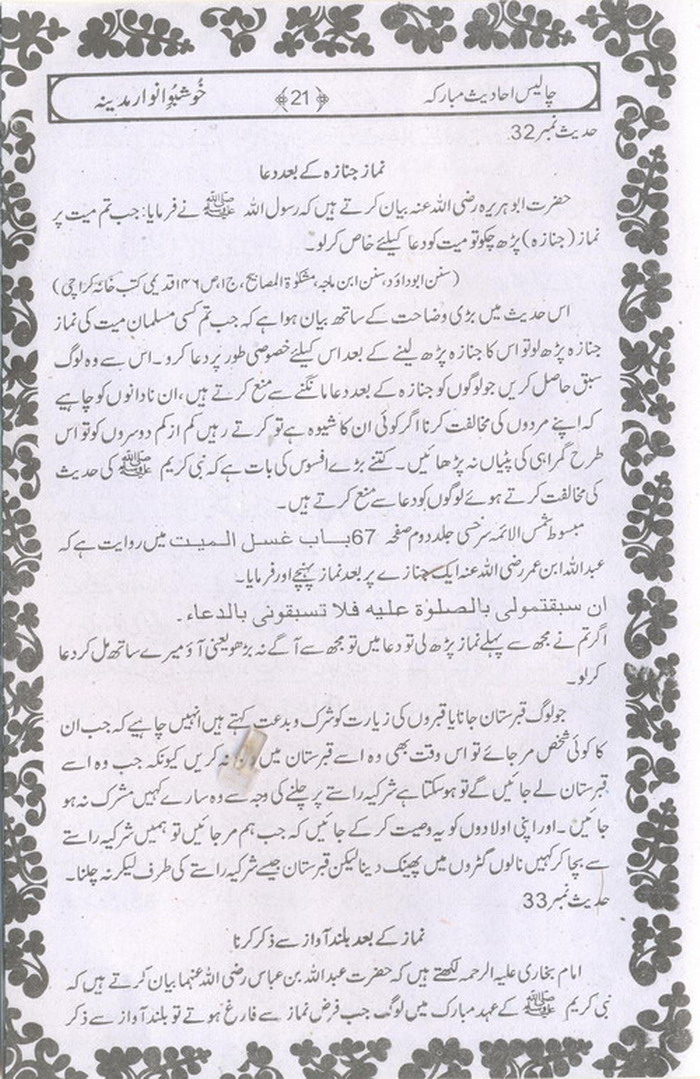 چالیس احادیث مبارکہ ﴿21﴾ خُوشبوُئے انوار مدینہ
حدیث نمبر 32
نماز جنازہ کے بعد دعا
حضرت ابو ہریرہ رضی اللہ عنہ بیان کرتے ہیں کہ رسول اللہ ﷺ نے فرمایا: جب تم میت پر
نماز (جنازہ) پڑھ چکو تو میت کو دعا کیلئے خاص کر لو۔
(سنن ابوداؤد، سنن ابن ماجہ، مشکوٰۃ المصابیح، ج۱ ص۱۴۶ قدیمی کتب خانہ کراچی)
اس حدیث میں بڑی وضاحت کے ساتھ بیان ہوا ہے کہ جب تم کسی مسلمان میت کی نماز
جنازہ پڑھ لو تو اس کا جنازہ پڑھ لینے کے بعد اس کیلئے خصوصی طور پر دعا کرو۔ اس سے وہ لوگ
سبق حاصل کریں جو لوگوں کو جنازہ کے بعد دعا مانگنے سے منع کرتے ہیں، ان نادانوں کو چاہیے
کہ اپنے مردوں کی مخالفت کرنا اگر کوئی ان کا شیوہ ہے تو کرتے رہیں کم از کم دوسروں کو تو اس
طرح گمراہی کی پٹیاں نہ پڑھائیں۔ کتنے بڑے افسوس کی بات ہے کہ نبی کریم ﷺ کی حدیث
کی مخالفت کرتے ہوئے لوگوں کو دعا سے منع کرتے ہیں۔
مبسوط شمس الائمہ سرخسی جلد دوم صفحہ 67 باب غسل المیت میں روایت ہے کہ
عبداللہ ابن عمر رضی اللہ عنہ ایک جنازے پر بعد نماز پہنچے اور فرمایا۔
ان سبقتمولی بالصلوٰۃ علیه فلا تسبقونی بالدعاء۔
اگر تم نے مجھ سے پہلے نماز پڑھ لی تو دعا میں تو مجھ سے آگے نہ بڑھو یعنی آؤ میرے ساتھ مل کر دعا
کر لو۔
جو لوگ قبرستان جانا یا قبروں کی زیارت کو شرک و بدعت کہتے ہیں انہیں چاہیے کہ جب ان
کا کوئی شخص مر جائے تو اس وقت بھی وہ اسے قبرستان میں نہ کریں کیونکہ جب وہ اسے
قبرستان لے جائیں گے تو ہو سکتا ہے شرکیہ راستے پر چلنے کی وجہ سے وہ سارے کہیں مشرک نہ ہو
جائیں۔ اور اپنی اولادوں کو یہ وصیت کر کے جائیں کہ جب ہم مر جائیں تو ہمیں شرکیہ راستے
سے بچا کر کہیں نالوں گٹروں میں پھینک دینا لیکن قبرستان جیسے شرکیہ راستے کی طرف لیکر نہ چلنا۔
حدیث نمبر 33
نماز کے بعد بلند آواز سے ذکر کرنا
امام بخاری علیہ الرحمہ لکھتے ہیں کہ حضرت عبداللہ بن عباس رضی اللہ عنہما بیان کرتے ہیں کہ
نبی کریم ﷺ کے عہد مبارک میں لوگ جب فرض نماز سے فارغ ہوتے تو بلند آواز سے ذکر